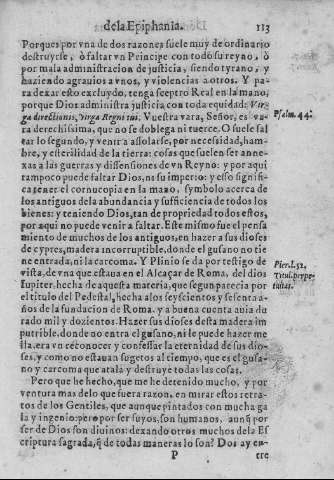 de la Epiphania. 113
Porques por vna de dos razones suele muy de ordinario
destruyrse, ò faltar vn Principe con todo su reyno, ò
por mala administracion de justicia, siendo tyrano, y
haziendo agrauios a vnos, y violencias a otros. Y pa
ra dexar esto excluydo, tenga sceptro Real en la mano,
porque Dios administra justicia con toda equidad: Vir-
ga directionis, virga Regni tui. Vuestra vara, Señor, es va
ra derechissima, que no se doblega ni tuerce. O suele fal
tar lo segundo, y venir a assolarse, por necessidad, ham-
bre, y esterilidad de la tierra: cosas que suelen ser annex-
as a las guerras y dissensiones de vn Reyno: y por aqui
tampoco puede faltar Dios, ni su imperio: y esso signifi
ca, tener el cornucopia en la mano, symbolo acerca de
los antiguos de la abundancia y sufficiencia de todos los
bienes: y teniendo Dios, tan de propriedad todos estos,
por aqui no puede venir a faltar. Este mismo fue el pensa
miento de muchos de los antiguos, en hazer a sus dioses
de cypres, madera incorruptible, donde el gusano no tie
ne entrada, ni la carcoma. Y Plinio se da por testigo de
vista, de vna que estaua en el Alcaçar de Roma, del dios
Iupiter, hecha de aquesta materia, que segun parecia por
el titulo del Pedestal, hecha a los seyscientos y sesenta a-
ños de la fundacion de Roma, y a buena cuenta auia du
rado mil y dozientos. Hazer sus dioses desta madera im
putrible, donde no entra el gusano, ni le puede hazer me
lla, era vn reconocer y confessar la eternidad de sus dio-
ses, y como no estauan sugetos al tiempo, que es el gusa-
no y carcoma que atala y destruye todas las cosas.
Pero que he hecho, que me he detenido mucho, y por
ventura mas de lo que fuera razon, en mirar estos retra-
tos de los Gentiles, que aunque pintados con mucha ga
la y ingenio: pero por ser suyos, son humanos, aunq̃ por
ser de Dios son diuinos: dexando otros muchos de la Es
criptura sagrada, q̃ de todas maneras lo son? Dos ay en-
P tre
Psalm. 44.
Pier. l. 52.